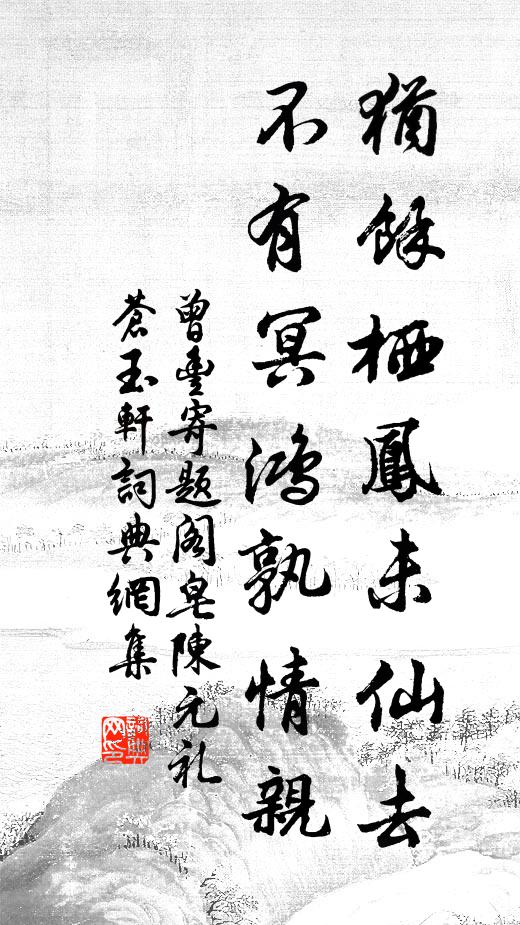 猶餘栖鳳未仙去
不有冥鴻孰情親
曾豐寄題阁皂陳元礼
蒼玉軒詞典網集